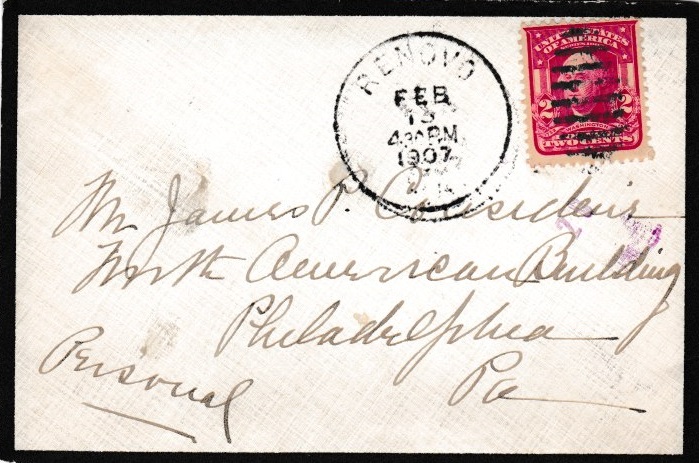 RENOVO
FEB
13
4 30 PM
1907
PA.
UNITED STATES
OF AMERICA
2 2
WASHINGTON
TWO CENTS
Mr James P.
North American Building
Philadelphia
Pa
Personal